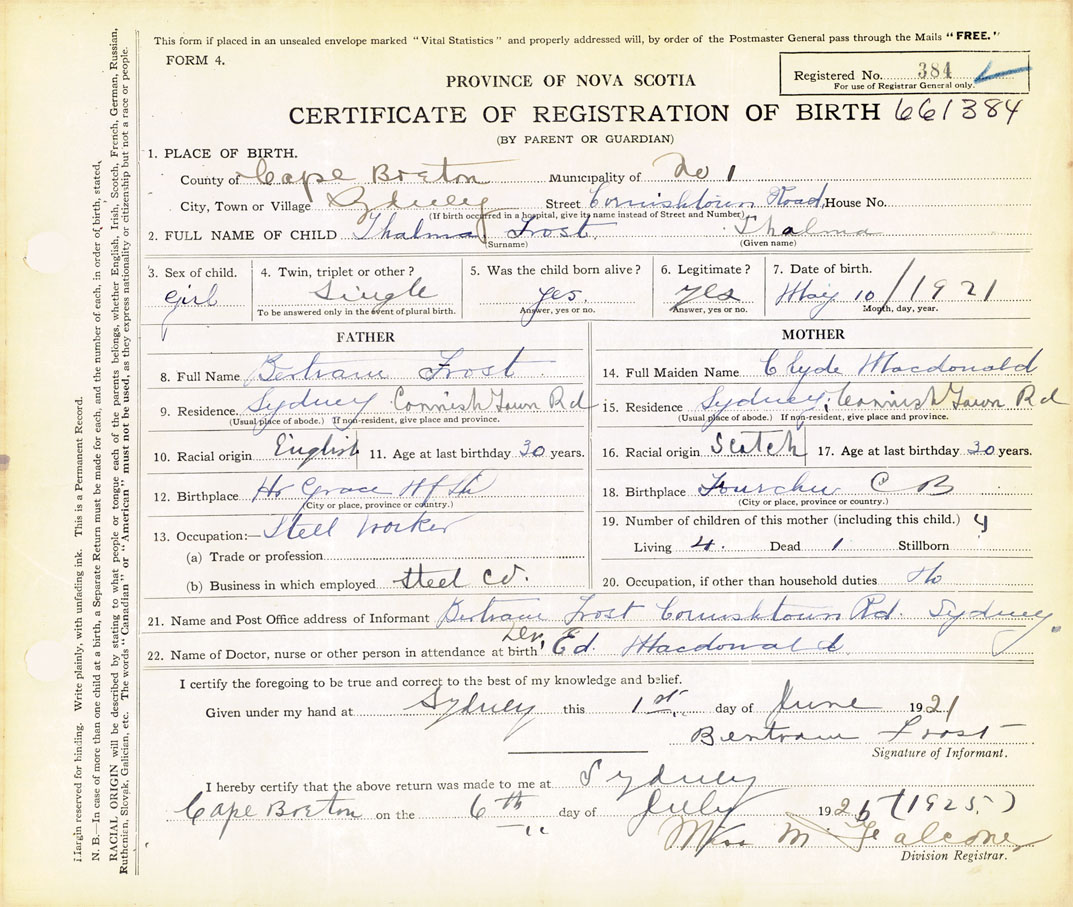 This form if placed in an unsealed envelope marked "Vital Statistics" and properly addressed will, by order of the Postmaster General pass through the Mails "FREE."
FORM 4.
Registered No. 384
For use of Registrar General only.
PROVINCE OF NOVA SCOTIA
CERTIFICATE OF REGISTRATION OF BIRTH 661384
(BY PARENT OR GUARDIAN)
1. PLACE OF BIRTH.
County of Cape Breton Municipality of No 1
City, Town or Village Sydney Street Cornishtown Road, House No.
(If birth occurred in a hospital, give its name instead of Street and Number)
2. FULL NAME OF CHILD Thalma Frost Thalma
(Surname) (Given name)
3. Sex of child. 4. Twin, triplet or other? 5. Was the child born alive? 6. Legitimate? 7. Date of birth.
girl Single yes. yes May 10/1921
To be answered only in the event of plural birth. Answer, yes or no. Answer, yes or no. Month, day, year.
FATHER
8. Full Name Bertram Frost
9. Residence. Sydney Cornish Town Rd
(Usual place of abode.) If non-resident, give place and province.
10. Racial origin English 11. Age at last birthday 30 years.
12. Birthplace Hr Grace Nfld
(City or place, province or country.)
13. Occupation:— Steel Worker
(a) Trade or profession
(b) Business in which employed Steel Co.
MOTHER
14. Full Maiden Name Clyde Macdonald
15. Residence Sydney, Cornish Town Rd
(Usual place of abode.) If non-resident, give place and province.
16. Racial origin Scotch 17. Age at last birthday 30 years.
18. Birthplace Fourchu C B
(City or place, province or country.)
19. Number of children of this mother (including this child.) 4
Living 4. Dead 1 Stillborn
20. Occupation, if other than household duties No
21. Name and Post Office address of Informant Bertram Frost Cornishtown Rd. Sydney.
22. Name of Doctor, nurse or other person in attendance at birth, Dr. Ed. Macdonald
I certify the foregoing to be true and correct to the best of my knowledge and belief.
Given under my hand at Sydney this 1st day of June 1921
Bertram Frost
Signature of Informant.
I hereby certify that the above return was made to me at Sydney
Cape Breton on the 6th day of July 1925 (1925)
Miss M Falconer
Division Registrar.
Margin reserved for binding. Write plainly, with unfading ink. This is a Permanent Record.
N. B.—In case of more than one child at a birth, a Separate Return must be made for each, and the number of each, in order of birth, stated.
RACIAL ORIGIN will be described by stating to what people or tongue each of the parents belongs, whether English, Irish, Scotch, French, German, Russian,
Ruthenian, Slovak, Galician, etc. The words "Canadian" or "American" must not be used, as they express nationality or citizenship but not a race or people.